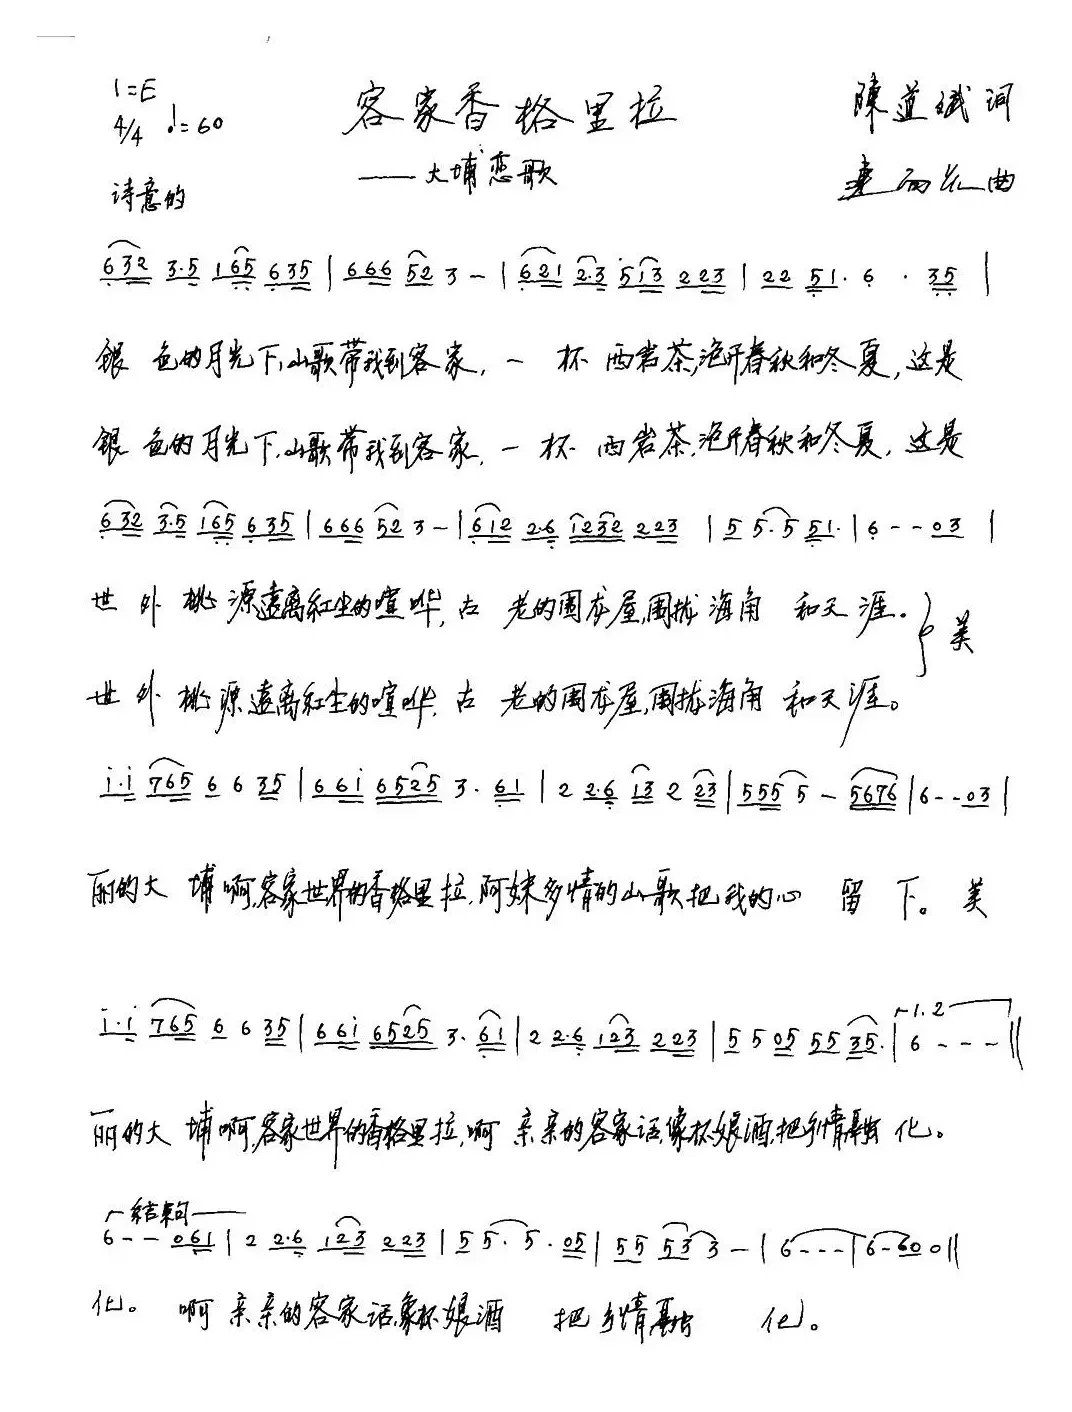 1=E 客家香格里拉 陳道斌词
4/4 ♩=60 ——大埔恋歌 曲
诗意的
632 3·5 165 635 | 666 52 3 - | 621 2·3 513 223 | 22 51· 6 · 35 |
银 色的月光下,山歌带我到客家,一 杯 西岩茶,泡开春秋和冬夏,这是
银 色的月光下,山歌带我到客家,一 杯 西岩茶,泡开春秋和冬夏,这是
632 3·5 165 635 | 666 52 3 - | 612 2·6 1232 223 | 5 5·5 51· | 6 - - 03 |
世 外 桃 源遠离紅尘的喧哗,古 老的围龙屋,围拢海角 和天涯。} 美
世 外 桃源遠离紅尘的喧哗,古 老的围龙屋,围拢海角 和天涯。
i·i 765 6 6 35 | 66i 6525 3· 61 | 2 2·6 13 2 23 | 555 5 - 5676 | 6 - - 03 |
丽的大 埔啊,客家世界的香格里拉,阿妹多情的山歌把我的心 留 下。 美
i·i 765 6 6 35 | 66i 6525 3· 61 | 2 2·6 123 223 | 5 5 05 55 35· | 1.2 6 - - - ‖
丽的大 埔啊,客家世界的香格里拉,啊 亲亲的客家话,像杯娘酒,把乡情融 化。
结束句
6 - - 061 | 2 2·6 123 223 | 5 5· 5· 05 | 55 53 3 - | 6 - - - | 6 - 60 0 ‖
化。 啊 亲亲的客家话,象杯娘酒 把 乡情融 化。